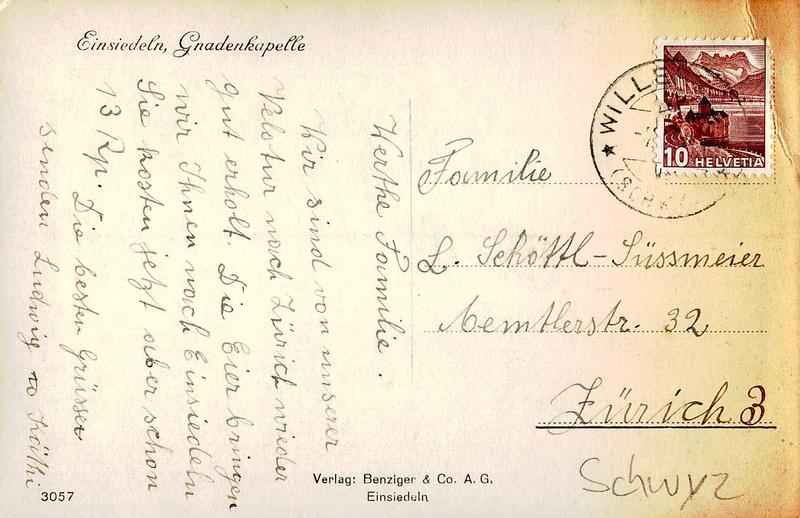 Einsiedeln, Gnadenkapelle
Werthe Familie.
Wir sind von unserer
Velotur nach Zürich wieder
gut erholt. Die Eier bringen
wir Ihnen nach Einsiedeln
Sie kosten jetzt aber schon
13 Rp. Die besten Grüsse
senden Ludwig u Käthi
WILLE
(SCHWYZ)
10 HELVETIA
Familie
L. Schöttl-Süssmeier
Aemtlerstr. 32
Zürich 3
Schwyz
Verlag: Benziger & Co. A. G.
Einsiedeln
3057